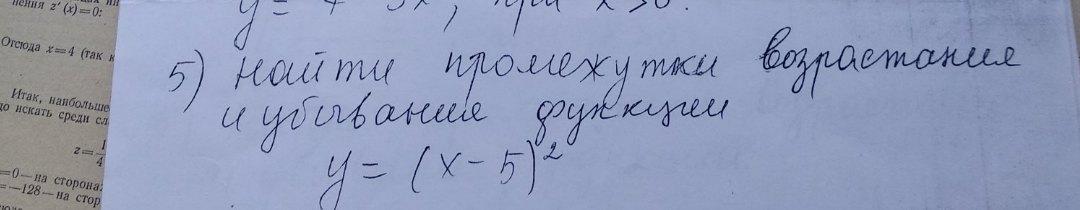 нения z′(x)=0:
Отсюда x=4 (так к
Итак, наибольше
до искать среди сл
=0—на сторона
=—128—на стор
при x>0.
5) Найти промежутки возрастания
и убывание функции
y = (x - 5)²